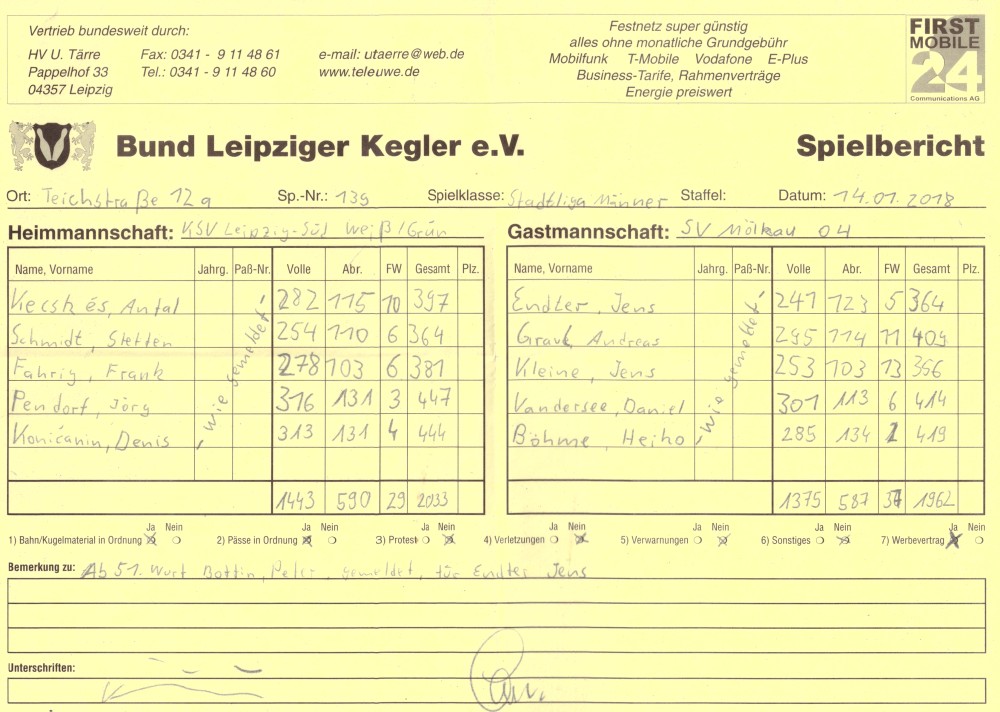 Vertrieb bundesweit durch:
HV U. Tärre Fax: 0341 - 9 11 48 61 e-mail: utaerre@web.de
Pappelhof 33 Tel.: 0341 - 9 11 48 60 www.teleuwe.de
04357 Leipzig
Festnetz super günstig
alles ohne monatliche Grundgebühr
Mobilfunk T-Mobile Vodafone E-Plus
Business-Tarife, Rahmenverträge
Energie preiswert
FIRST
MOBILE
24
Communications AG
Bund Leipziger Kegler e.V. Spielbericht
Ort: Teichstraße 12a Sp.-Nr.: 139 Spielklasse: Stadtliga Männer Staffel: Datum: 14.01.2018
Heimmannschaft: KSV Leipzig-Süd Weiß/Grün Gastmannschaft: SV Mölkau 04
Name, Vorname Jahrg. Paß-Nr. Volle Abr. FW Gesamt Plz. Name, Vorname Jahrg. Paß-Nr. Volle Abr. FW Gesamt Plz.
Kecskés, Antal 282 115 10 397 Endter, Jens 241 123 5 364
Schmidt, Steffen 254 110 6 364 Andreas 295 114 11 409
Fahrig, Frank 278 103 6 381 Kleine, Jens 253 103 13 356
Pendorf, Jörg 316 131 3 447 Vandersee, Daniel 301 113 6 414
Koničanin, Denis 313 131 4 444 Böhme, Heiko 285 134 2 419
wie gemeldet! wie gemeldet!
1443 590 29 2033 1375 587 37 1962
Ja Nein Ja Nein Ja Nein Ja Nein Ja Nein Ja Nein Ja Nein
1) Bahn/Kugelmaterial in Ordnung 2) Pässe in Ordnung 3) Protest 4) Verletzungen 5) Verwarnungen 6) Sonstiges 7) Werbevertrag
Bemerkung zu: Ab 51. Wurf Bottin, Peter, gemeldet, für Endter Jens
Unterschriften: